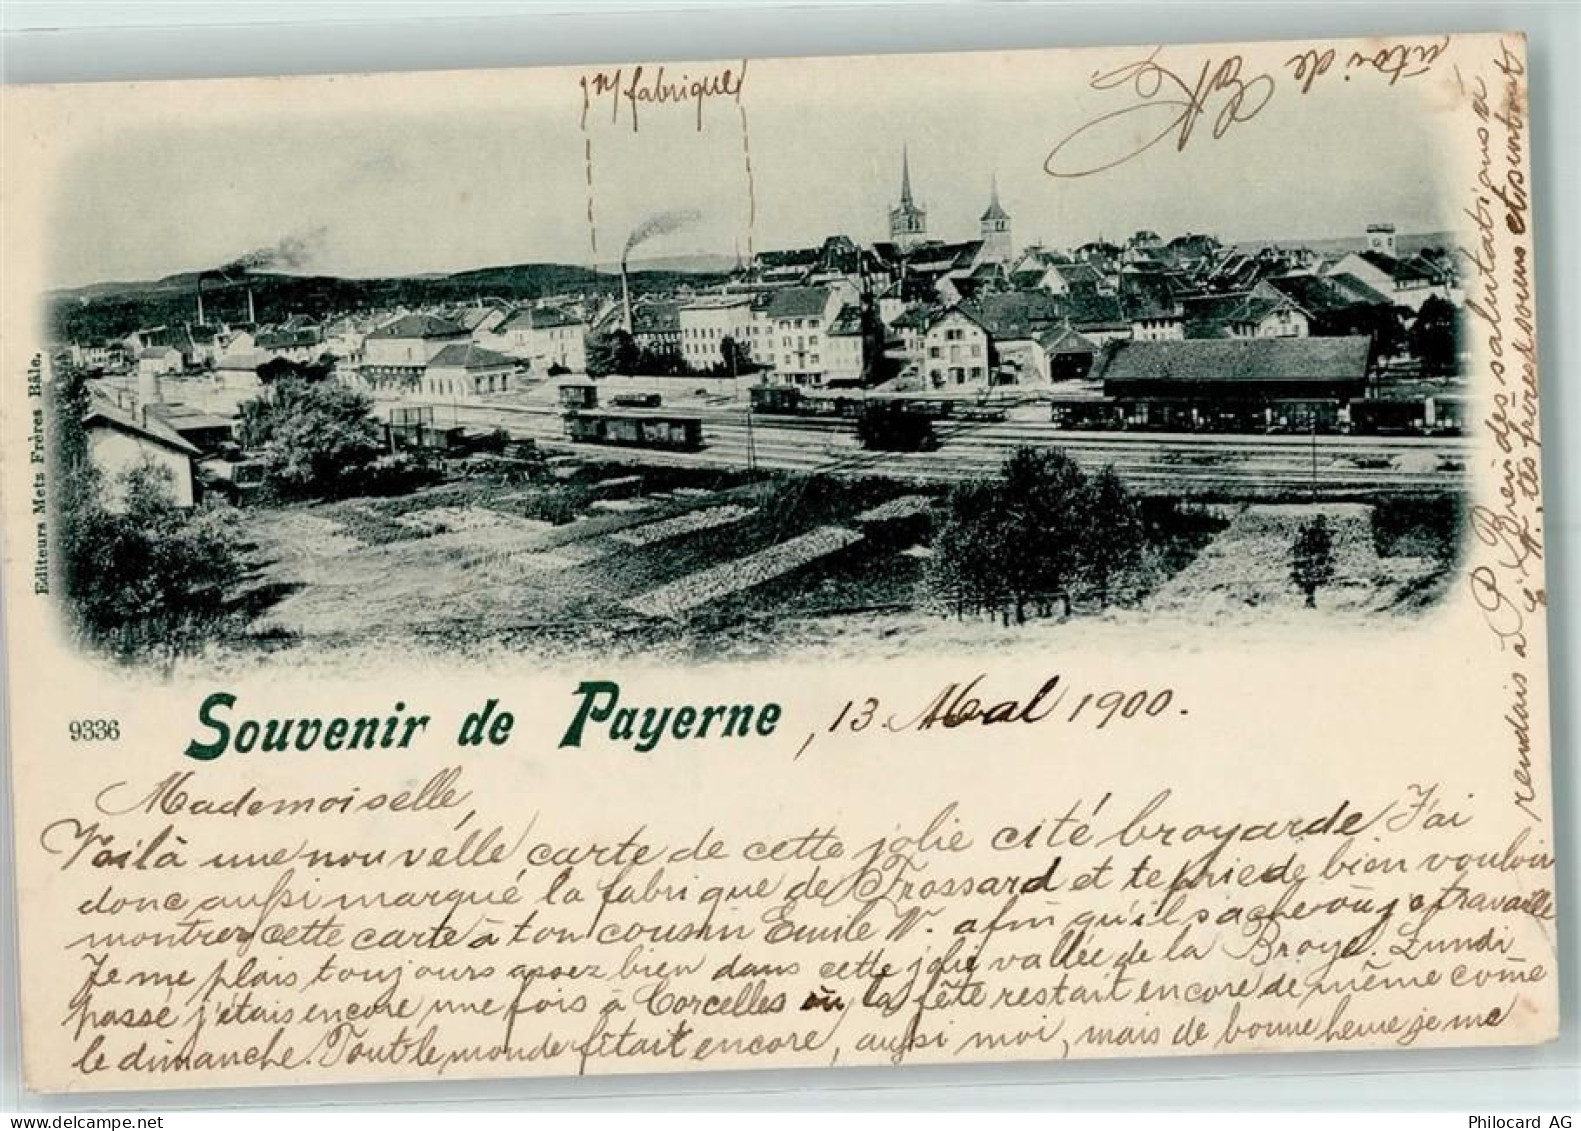 fabrique
Editeurs Metz Frères Bâle.
9336
Souvenir de Payerne, 13. Mai 1900.
Mademoiselle,
Voilà une nouvelle carte de cette jolie cité broyarde. J'ai
donc aussi marqué la fabrique de Frossard et te prie de bien vouloir
montrer cette carte à ton cousin Emile W. afin qu'il sache où je travaille
Je me plais toujours assez bien dans cette jolie vallée de la Broye. Lundi
passé j'étais encore une fois à Corcelles où la fête restait encore de même come
le dimanche. Tout le monde fêtait encore, aussi moi, mais de bonne heure je me
rendais à P. Bien des salutations à
tes frères et soeurs et surtout
à toi de
Philocard AG